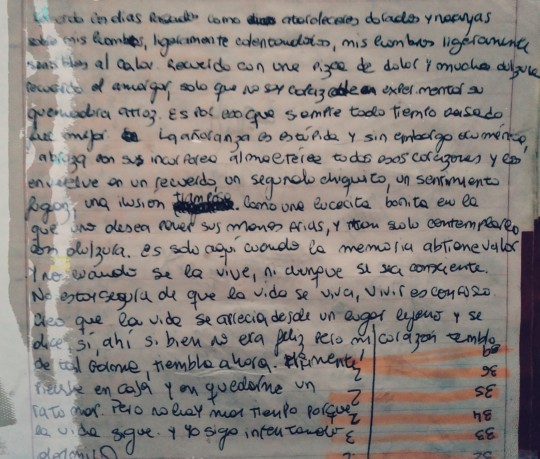 los dias Pasados como atardeceres dorados y naranjas
sobre mis hombros, ligeramente calentandolos, mis hombros ligeramente
sensibles al calor. Recuerdo con una pizca de dolor y mucha dulzura
recuerdo el amargor, solo que no soy capaz de experimentar su
quemadura atroz. Es por eso que siempre todo tiempo pasado
fue mejor. La añoranza es estúpida y sin embargo ecuménica,
abraza con sus incorporeo almaetérea todos esos corazones y los
envuelve en un recuerdo, un segundo chiquito, un sentimiento
fugaz, una ilusion. Como una lucecita bonita en la
que uno desea poner sus manos frias, y tan solo contemplarlo
con dulzura. Es solo aqui cuando la memoria obtiene valor
Y no cuando se la vive, ni aunque se sea consciente.
No estoy segura de que la vida se viva, vivir es confuso.
Creo que la vida se aprecia desde un lugar lejano y se
dice, sí, ahí si bien no era feliz pero mi corazón tembló
de tal forma, tiembla ahora.
39
36
piense en casa y en quedarme un 2
35
rato mas. Pero no hay mas tiempo porque 2
34
la vida sigue. y yo sigo intentando 3
33
32